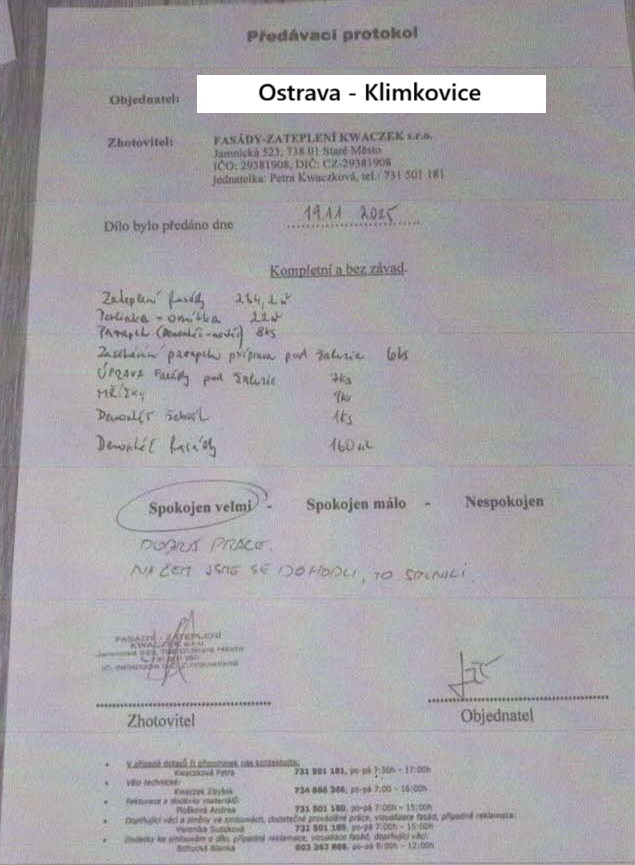 Předávací protokol
Objednatel: Ostrava - Klimkovice
Zhotovitel: FASÁDY-ZATEPLENÍ KWACZEK s.r.o.
Jamnická 523, 738 01 Staré Město
IČO: 29381908, DIČ: CZ-29381908
jednatelka: Petra Kwaczková, tel.: 731 501 181
Dílo bylo předáno dne 19.11 2025
Kompletní a bez závad.
Zateplení fasády 264,2 m²
Perlinka - omítka 22 m²
Parapety (Demontáž-nové) 8ks
parapetu příprava pod žaluzie 6ks
ÚPRAVA Fasády pod žaluzie 7ks
MŘÍŽKY 9ks
Demontáž 1ks
Demontáž fasády 160 m²
Spokojen velmi - Spokojen málo - Nespokojen
DOBRÁ PRÁCE.
NA ČEM JSME SE DOHODLI, TO SPLNILI.
FASÁDY - ZATEPLENÍ
KWACZEK s.r.o.
Jamnická 523, 738 01 Staré Město
Zhotovitel Objednatel
V případě dotazů či připomínek nás kontaktujte:
Kwaczková Petra 731 501 181, po-pá 7:30h - 17:00h
Věci technické:
Kwaczek Zbyšek 734 866 366, po-pá 7:00 - 16:00h
Fakturace a dodávky materiálů:
Plošková Andrea 731 501 180, po-pá 7:00h - 15:00h
Doplňující věci a změny ve smlouvách, dodatečně prováděné práce, vizualizace fasád, případné reklamace:
Veronika Suszková 731 501 185, po-pá 7:00h - 15:00h
Dodatky ke smlouvám o dílo, případná reklamace, vizualizace fasád, doplňující věci:
Bohucká Blanka 603 363 868, po-pá 8:00h - 12:00h